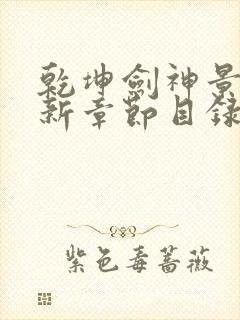 乾坤劍神景
新章節目錄
紫色毒薔薇